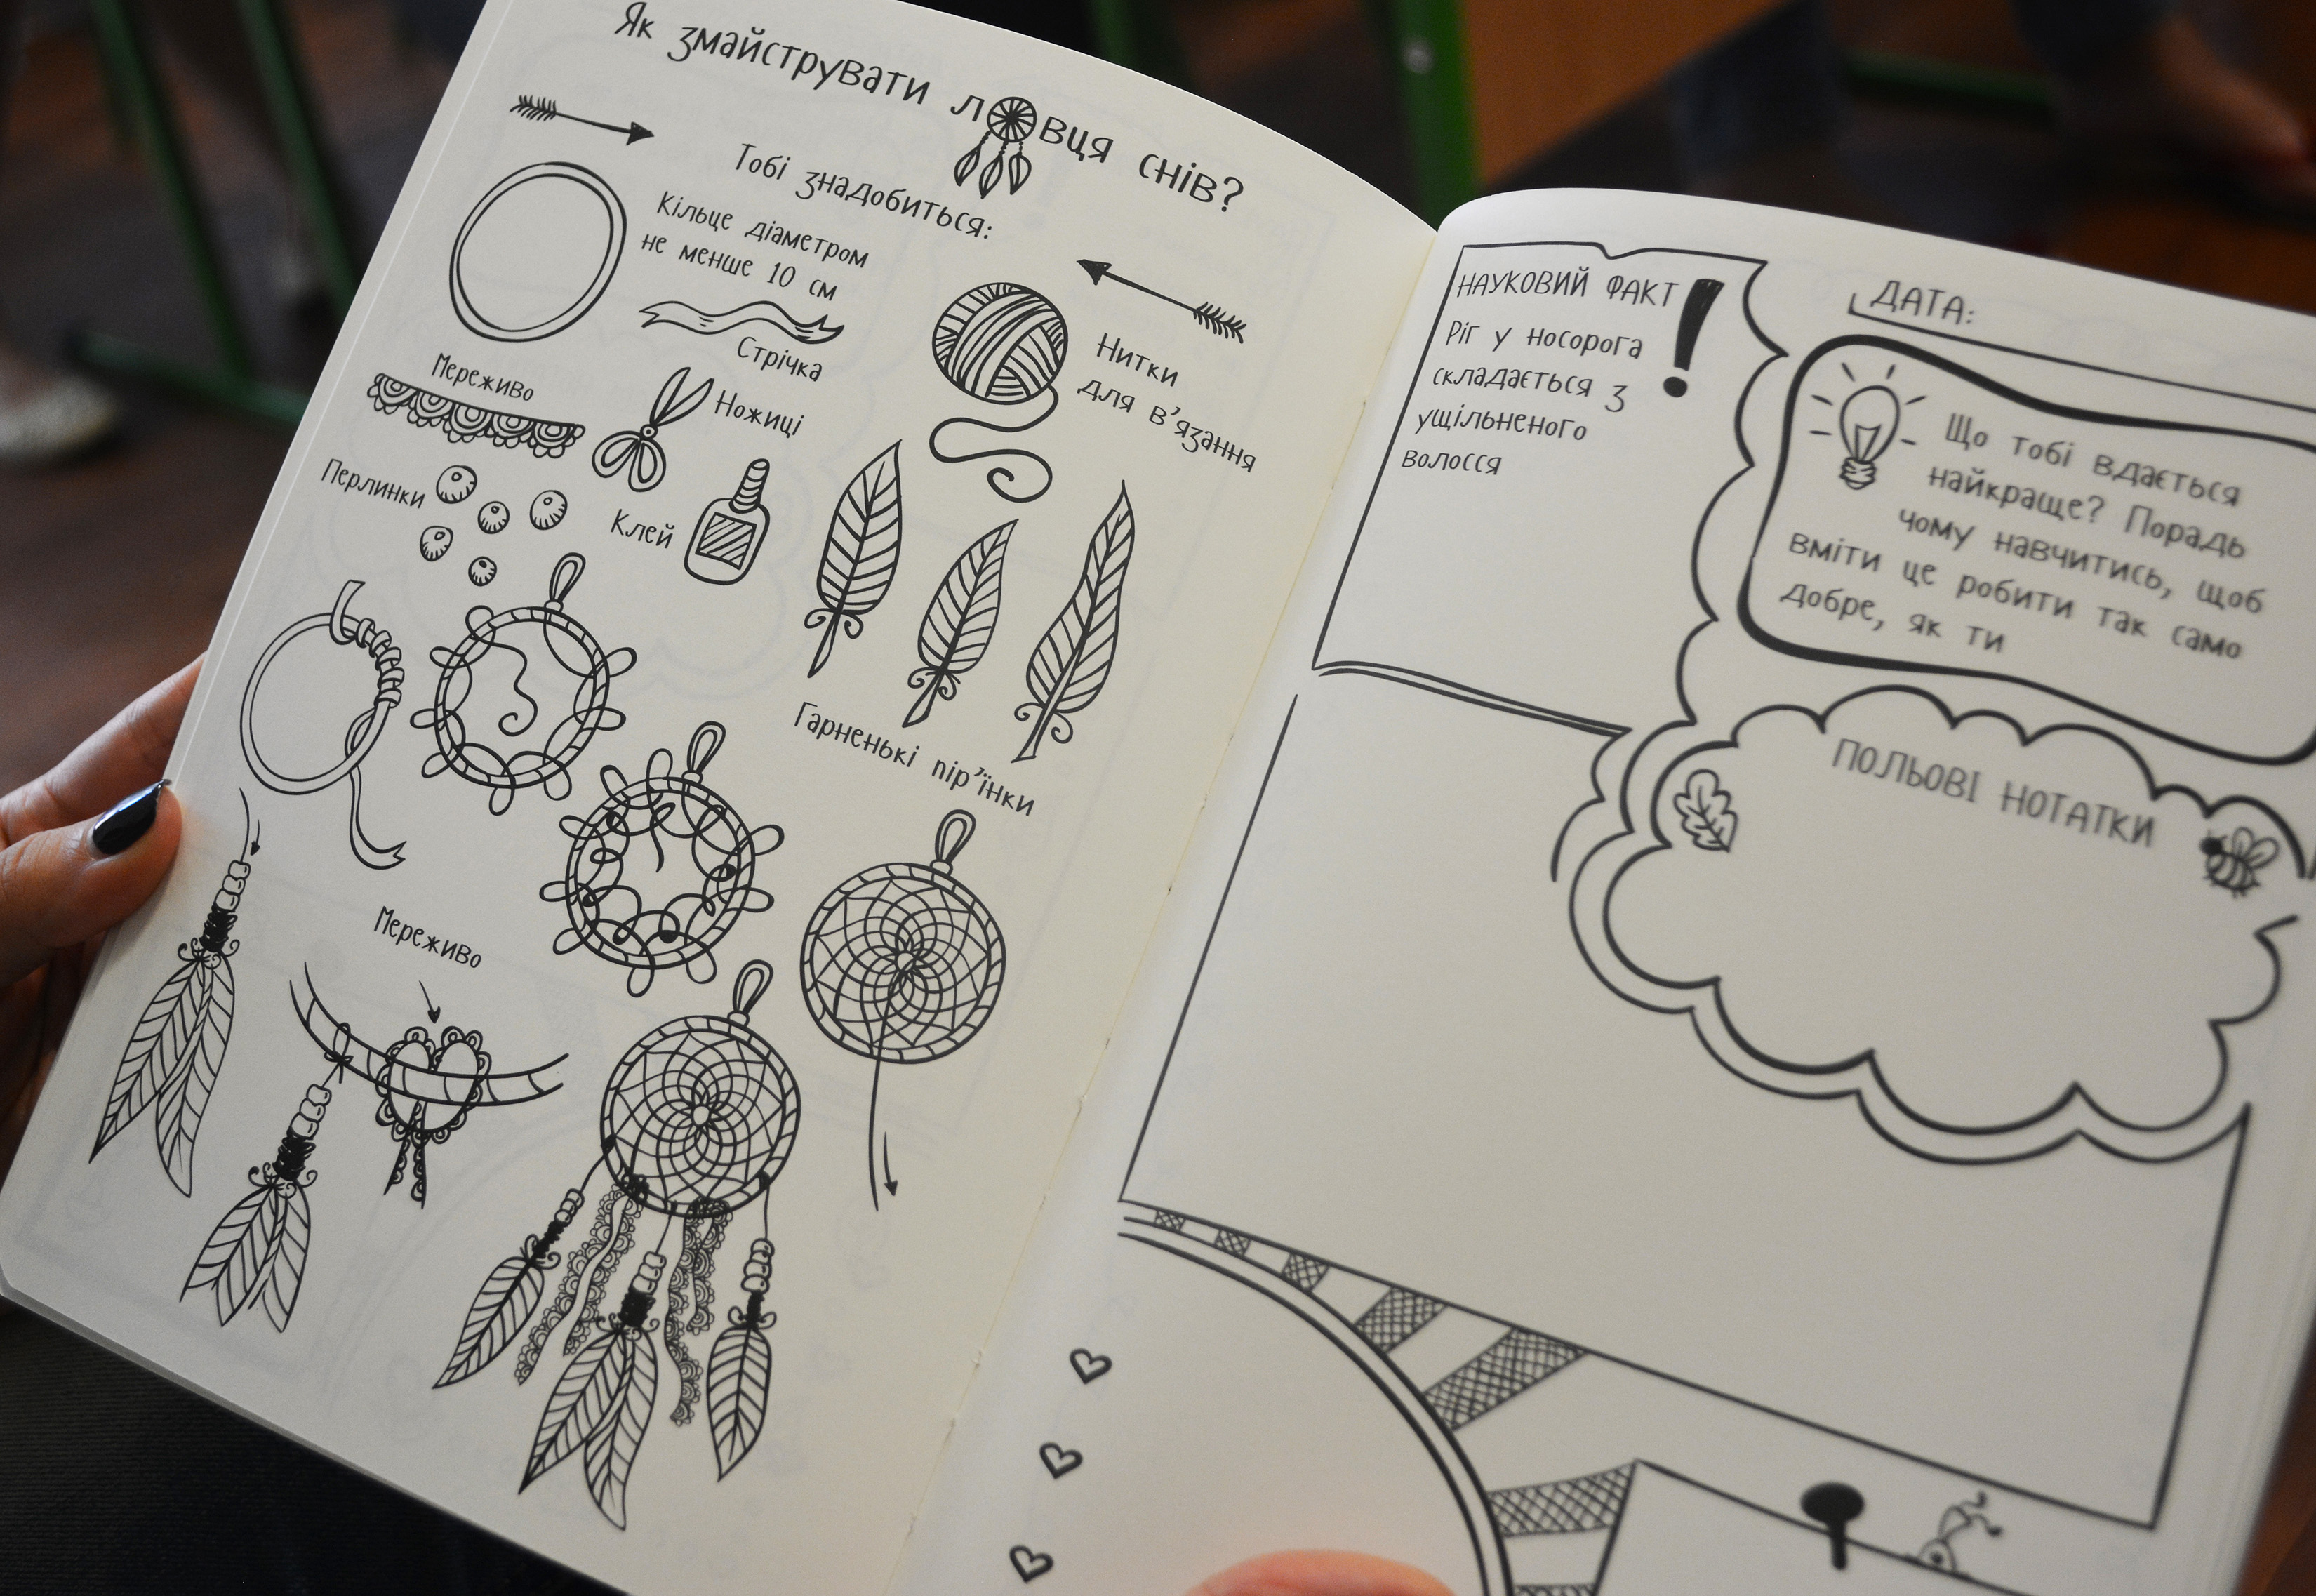 Як змайструвати ловця снів?
Тобі знадобиться:
Кільце діаметром
не менше 10 см
Стрічка
Нитки
для в'язання
Мереживо
Ножиці
Перлинки
Клей
Гарненькі пір'їнки
Мереживо
НАУКОВИЙ ФАКТ!
Ріг у носорога
складається з
ущільненого
волосся
ДАТА:
Що тобі вдається
найкраще? Порадь
чому навчитись, щоб
вміти це робити так само
добре, як ти
ПОЛЬОВІ НОТАТКИ